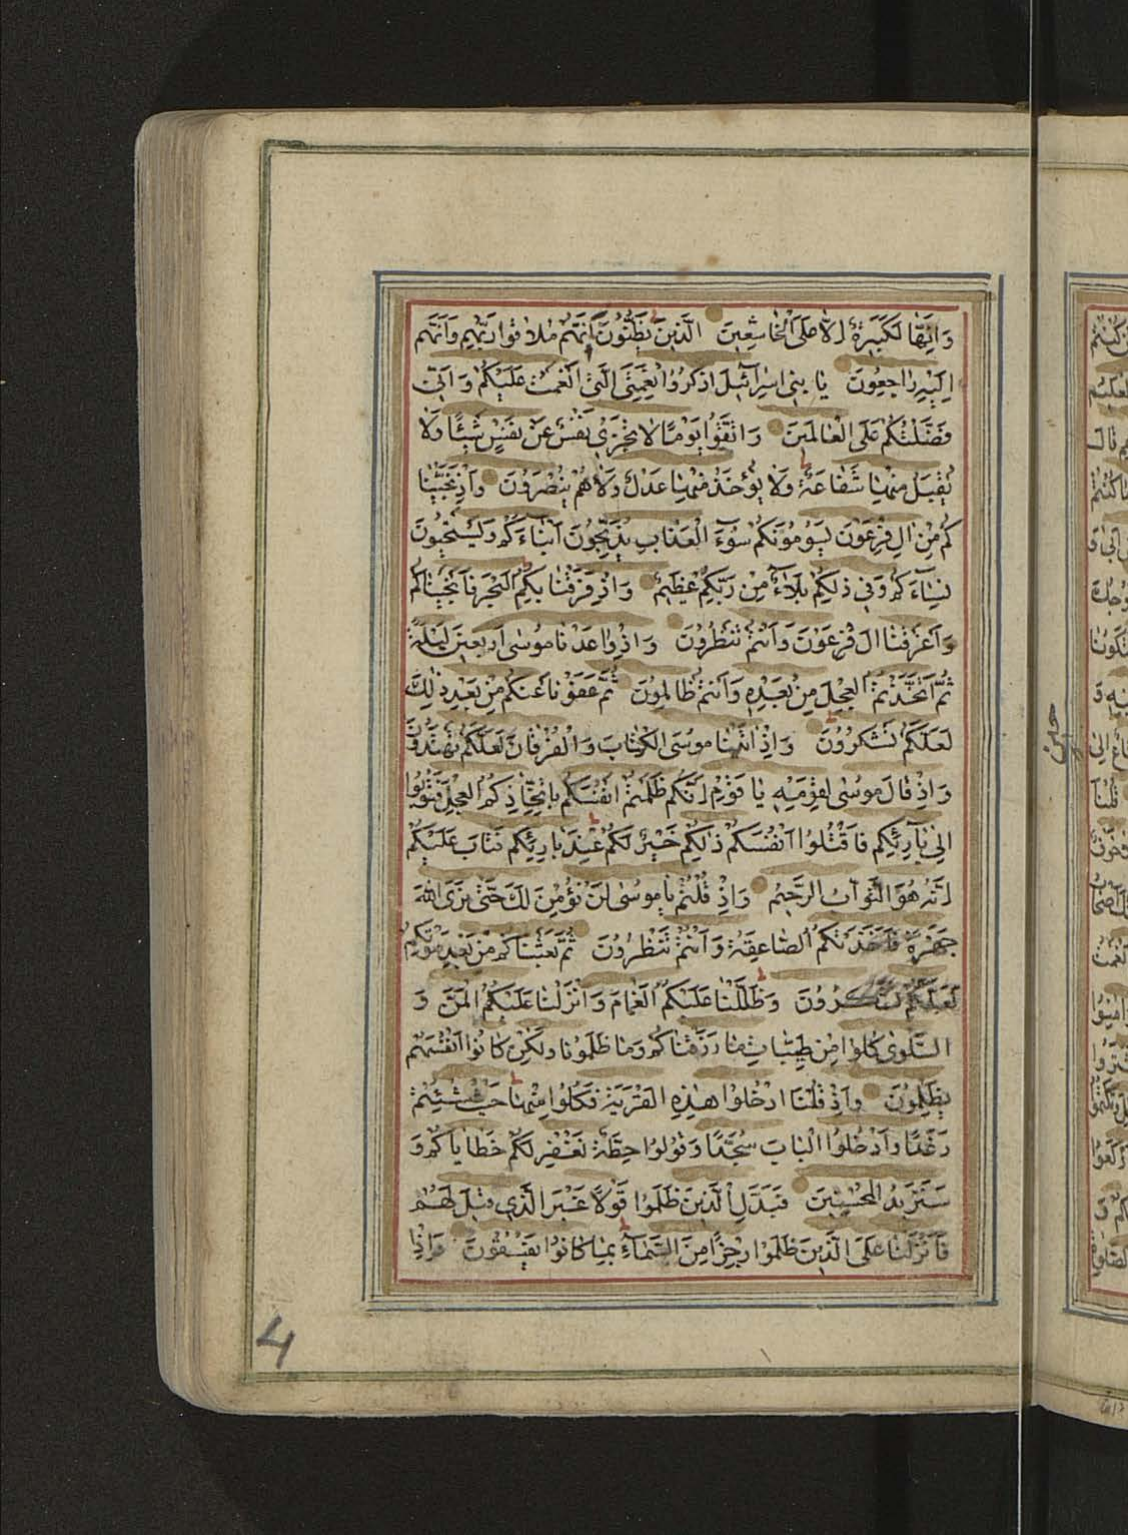 وَاِنَّهَا لَكَبِيرَةٌ اِلَّا عَلَى الْخَاشِعِينَ الَّذِينَ يَظُنُّونَ اَنَّهُمْ مُلَاقُوا رَبِّهِمْ وَاَنَّهُمْ
اِلَيْهِ رَاجِعُونَ يَا بَنِي اِسْرَائِيلَ اذْكُرُوا نِعْمَتِيَ الَّتِي اَنْعَمْتُ عَلَيْكُمْ وَاَنِّي
فَضَّلْتُكُمْ عَلَى الْعَالَمِينَ وَاتَّقُوا يَوْمًا لَا تَجْزِي نَفْسٌ عَنْ نَفْسٍ شَيْئًا وَلَا
يُقْبَلُ مِنْهَا شَفَاعَةٌ وَلَا يُؤْخَذُ مِنْهَا عَدْلٌ وَلَا هُمْ يُنْصَرُونَ وَاِذْ نَجَّيْنَا
كُمْ مِنْ اٰلِ فِرْعَوْنَ يَسُومُونَكُمْ سُوءَ الْعَذَابِ يُذَبِّحُونَ اَبْنَاءَكُمْ وَيَسْتَحْيُونَ
نِسَاءَكُمْ وَفِي ذٰلِكُمْ بَلَاءٌ مِنْ رَبِّكُمْ عَظِيمٌ وَاِذْ فَرَقْنَا بِكُمُ الْبَحْرَ فَاَنْجَيْنَاكُمْ
وَاَغْرَقْنَا اٰلَ فِرْعَوْنَ وَاَنْتُمْ تَنْظُرُونَ وَاِذْ وَاعَدْنَا مُوسٰى اَرْبَعِينَ لَيْلَةً
ثُمَّ اتَّخَذْتُمُ الْعِجْلَ مِنْ بَعْدِهِ وَاَنْتُمْ ظَالِمُونَ ثُمَّ عَفَوْنَا عَنْكُمْ مِنْ بَعْدِ ذٰلِكَ
لَعَلَّكُمْ تَشْكُرُونَ وَاِذْ اٰتَيْنَا مُوسَى الْكِتَابَ وَالْفُرْقَانَ لَعَلَّكُمْ تَهْتَدُونَ
وَاِذْ قَالَ مُوسٰى لِقَوْمِهِ يَا قَوْمِ اِنَّكُمْ ظَلَمْتُمْ اَنْفُسَكُمْ بِاتِّخَاذِكُمُ الْعِجْلَ فَتُوبُوا
اِلٰى بَارِئِكُمْ فَاقْتُلُوا اَنْفُسَكُمْ ذٰلِكُمْ خَيْرٌ لَكُمْ عِنْدَ بَارِئِكُمْ فَتَابَ عَلَيْكُمْ
اِنَّهُ هُوَ التَّوَّابُ الرَّحِيمُ وَاِذْ قُلْتُمْ يَا مُوسٰى لَنْ نُؤْمِنَ لَكَ حَتّٰى نَرَى اللّٰهَ
جَهْرَةً فَاَخَذَتْكُمُ الصَّاعِقَةُ وَاَنْتُمْ تَنْظُرُونَ ثُمَّ بَعَثْنَاكُمْ مِنْ بَعْدِ مَوْتِكُمْ
لَعَلَّكُمْ تَشْكُرُونَ وَظَلَّلْنَا عَلَيْكُمُ الْغَمَامَ وَاَنْزَلْنَا عَلَيْكُمُ الْمَنَّ وَ
السَّلْوٰى كُلُوا مِنْ طَيِّبَاتِ مَا رَزَقْنَاكُمْ وَمَا ظَلَمُونَا وَلٰكِنْ كَانُوا اَنْفُسَهُمْ
يَظْلِمُونَ وَاِذْ قُلْنَا ادْخُلُوا هٰذِهِ الْقَرْيَةَ فَكُلُوا مِنْهَا حَيْثُ شِئْتُمْ
رَغَدًا وَادْخُلُوا الْبَابَ سُجَّدًا وَقُولُوا حِطَّةٌ نَغْفِرْ لَكُمْ خَطَايَاكُمْ وَ
سَنَزِيدُ الْمُحْسِنِينَ فَبَدَّلَ الَّذِينَ ظَلَمُوا قَوْلًا غَيْرَ الَّذِي قِيلَ لَهُمْ
فَاَنْزَلْنَا عَلَى الَّذِينَ ظَلَمُوا رِجْزًا مِنَ السَّمَاءِ بِمَا كَانُوا يَفْسُقُونَ وَاِذِ
4